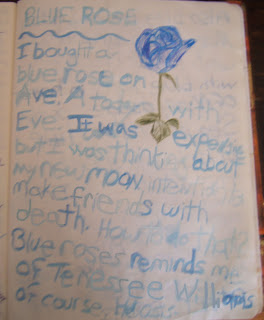 BLUE ROSE
I bought a
blue rose on
Ave. A today with
Eve. It was expensive
but I was thinking about
my new moon, intention to
make friends with
death. How to do that?
Blue roses reminds me
of Tennessee Williams
of course, his